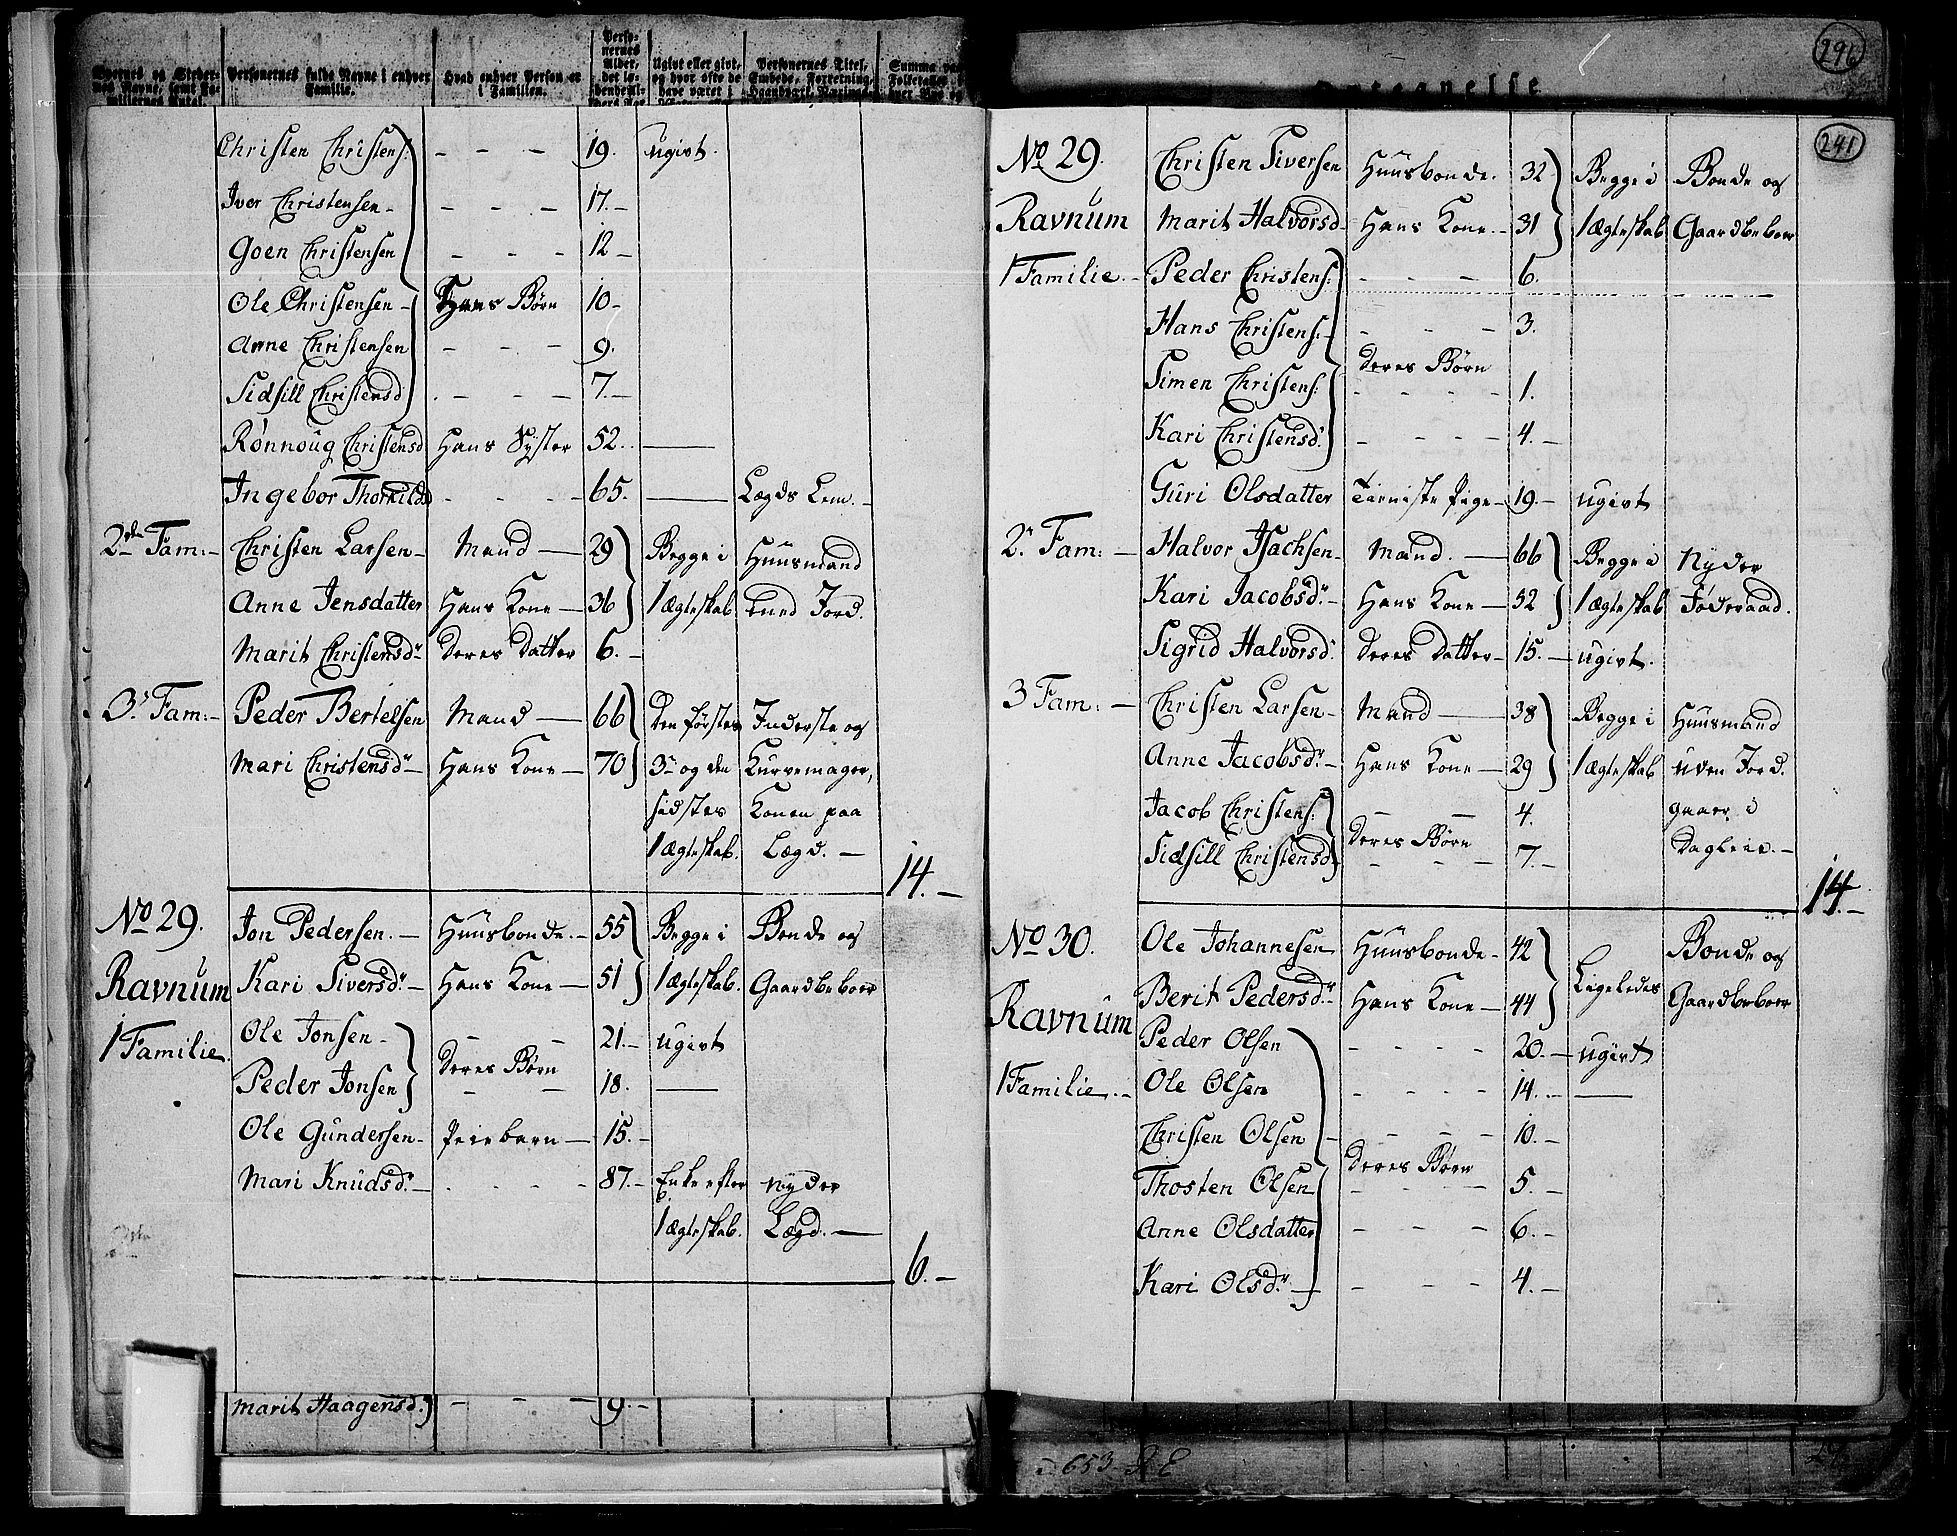 Personernes fulde Navne i enhver Familie.
Hvad enhver Person er i Familien.
Personernes Alder,
Ugivt eller givt, og hvor ofte de have været i
Personernes Titel, Embede, Forretning,
296
241
Christen Christens: - - - 19. ugivt.
Iver Christensen - - - - 17. -
Goen Christensen - - - 12 -
Ole Christensen - Hans Børn 10 -
Anne Christensen - - - 9.
Sidsill Christensd - - - 7. -
Rønnoug Christensd Hans Syster 52. —
Ingebor Thorkildsd - - - 65. — Lægds Lem. -
2den Fam: - Christen Larsen - Mand — 29 Begge i Huusmand
Anne Jensdatter Hans Kone — 36 1 ægteskab. med Jord.
Marit Christensdr Deres Datter 6. -
3. Fam: - Peder Bertelsen Mand — 66 Den førstes Inderste og
Mari Christensdr - Hans Kone — 70 3- og den Kurvemager,
sidstes Konen paa
1 ægteskab. Lægd. —
14. -
No 29. Jon Pedersen. - Huusbonde. - 55 Begge i Bonde og
Ravnum Kari Siversdr - Hans Kone — 51 1 ægteskab. Gaardbeboer
1 Familie. Ole Jonsen - - - 21. - ugivt
Deres Børn
Peder Jonsen - - 18. —
Ole Gundersen - Pleiebarn — 15. -
Mari Knudsdr - - - - 87. - Enke efter nyder
1 ægteskab. Lægd. —
6. -
Marit Haagensd. - - - 9. -
No 29. Christen Siversen Huusbonde. 32 Begge i Bonde og
Ravnum Marit Halvorsd - Hans Kone. - 31 1 ægteskab Gaardbeboer
1 Familie. - Peder Christens: - - - 6.
Hans Christens: - - - - 3.
Deres Børn
Simen Christens: - - - - 1.
Kari Christensd: - - - - 4. -
Guri Olsdatter Tieniste Pige - 19. - ugivt
2. Fam: — Halvor Isachsen - Mand. — 66 Begge i Nyder
Kari Jacobsdr - Hans Kone — 52 1 ægteskab Føderaad.
Sigrid Halvorsd. Deres Datter - 15. - ugivt.
3 Fam: — Christen Larsen - Mand — 38 Begge i Huusmand
Anne Jacobsdr - Hans Kone — 29 1 ægteskab uden Jord.
Jacob Christens: - - 4. gaaer i
Deres Børn
Sidsill Christensd - - - 7. - Dagleie. -
14. -
No 30. Ole Johannesen Huusbonde - 42 Bonde og
Ligeledes
Ravnum Berit Pedersdr Hans Kone — 44 Gaardbeboer
Peder Olsen - - - - 20. - ugivt
1 Familie. - Ole Olsen - - - - 14. - —
Christen Olsen - - - - 10. -
Deres Børn
Thosten Olsen - - - - 5. -
Anne Olsdatter - - - 6. -
Kari Olsdr — - - - 4. -
653